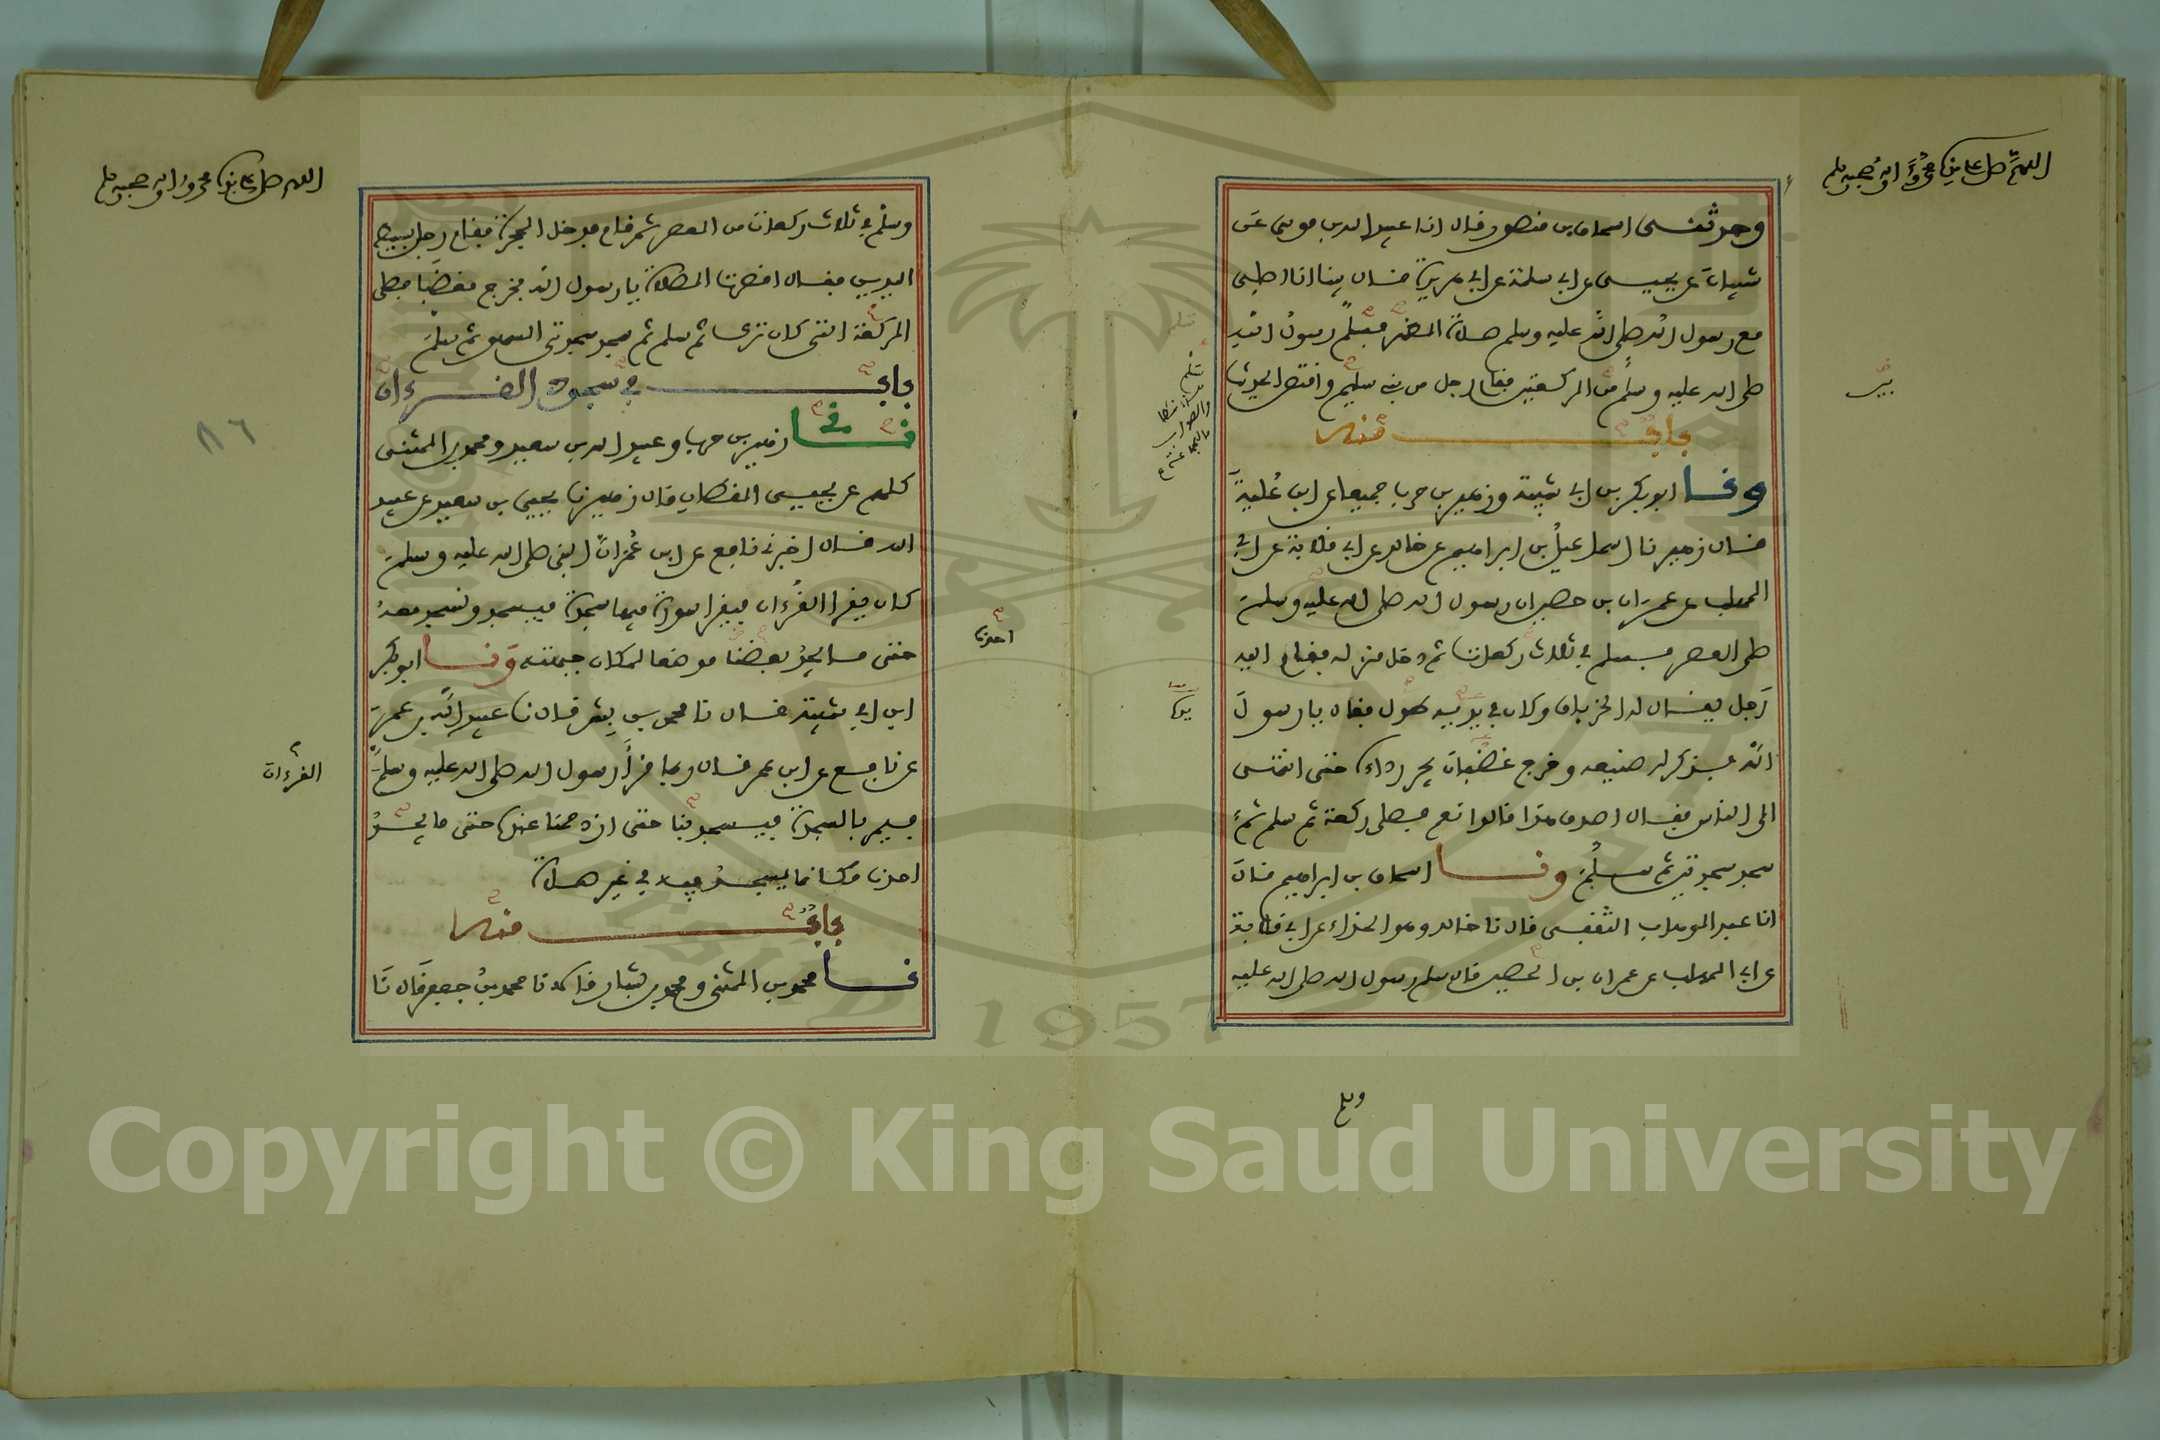 اللهم صل على نبينا محمد وءاله وصحبه وسلم
وحدثني اسحاق بن منصور قال انا عبيد الله بن موسى عن
شيبان عن يحيى عن ابي سلمة عن ابي هريرة قال بينا انا اصلي
مع رسول الله صلى الله عليه وسلم صلاة الظهر فسلم رسول الله
صلى الله عليه وسلم من الركعتين فقام رجل من بني سليم واقتص الحديث
باب منه
ونا ابو بكر بن ابي شيبة وزهير بن حرب جميعا عن ابن علية
قال زهير نا اسماعيل بن ابراهيم عن خالد عن ابي قلابة عن ابي
المهلب عن عمران بن حصين ان رسول الله صلى الله عليه وسلم
صلى العصر فسلم في ثلاث ركعات ثم دخل منزله فقام اليه
رجل يقال له الخرباق وكان في يديه طول فقال يا رسول
الله فذكر له صنيعه وخرج غضبان يجر رداءه حتى انتهى
الى الناس فقال اصدق هذا قالوا نعم فصلى ركعة ثم سلم ثم
سجد سجدتين ثم سلم ونا اسحاق بن ابراهيم قال
انا عبد الوهاب الثقفي قال نا خالد وهو الحذاء عن ابي قلابة
عن ابي المهلب عن عمران بن الحصين قال سلم رسول الله صلى الله عليه
وسلم
اللهم صل على نبينا محمد وءاله وصحبه وسلم
وسلم في ثلاث ركعات من العصر ثم قام فدخل الحجرة فقام رجل بسيط
اليدين فقال اقصرت الصلاة يا رسول الله فخرج مغضبا فصلى
الركعة التي كان ترك ثم سلم ثم سجد سجدتي السهو ثم سلم
باب في سجود القرءان
نا زهير بن حرب وعبيد الله بن سعيد ومحمد بن المثنى
كلهم عن يحيى القطان قال زهير نا يحيى بن سعيد عن عبيد
الله قال اخبرني نافع عن ابن عمر ان النبي صلى الله عليه وسلم
كان يقرا القرءان فيقرا سورة فيها سجدة فيسجد ونسجد معه
حتى ما يجد بعضنا موضعا لمكان جبهته ونا ابو بكر
ابن ابي شيبة قال نا محمد بن بشر قال نا عبيد الله بن عمر
عن نافع عن ابن عمر قال ربما قرأ رسول الله صلى الله عليه وسلم
فيمر بالسجدة فيسجد بنا حتى ازدحمنا عنده حتى ما يجد
احدنا مكانا ما يسجد فيه في غير صلاة
باب منه
نا محمد بن المثنى ومحمد بن بشار قالا نا محمد بن جعفر قال نا
احدنا
القرءان
٨٦
Copyright © King Saud University
1957